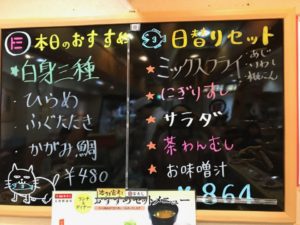 本日のおすすめ
白身三種
・ひらめ
・ふぐたたき
・かがみ鯛
¥480
日替りセット
★ミックスフライ
・あじ
・いわし
★にぎりすし
★サラダ
★茶わんむし
★お味噌汁
¥864
おすすめセットメニュー